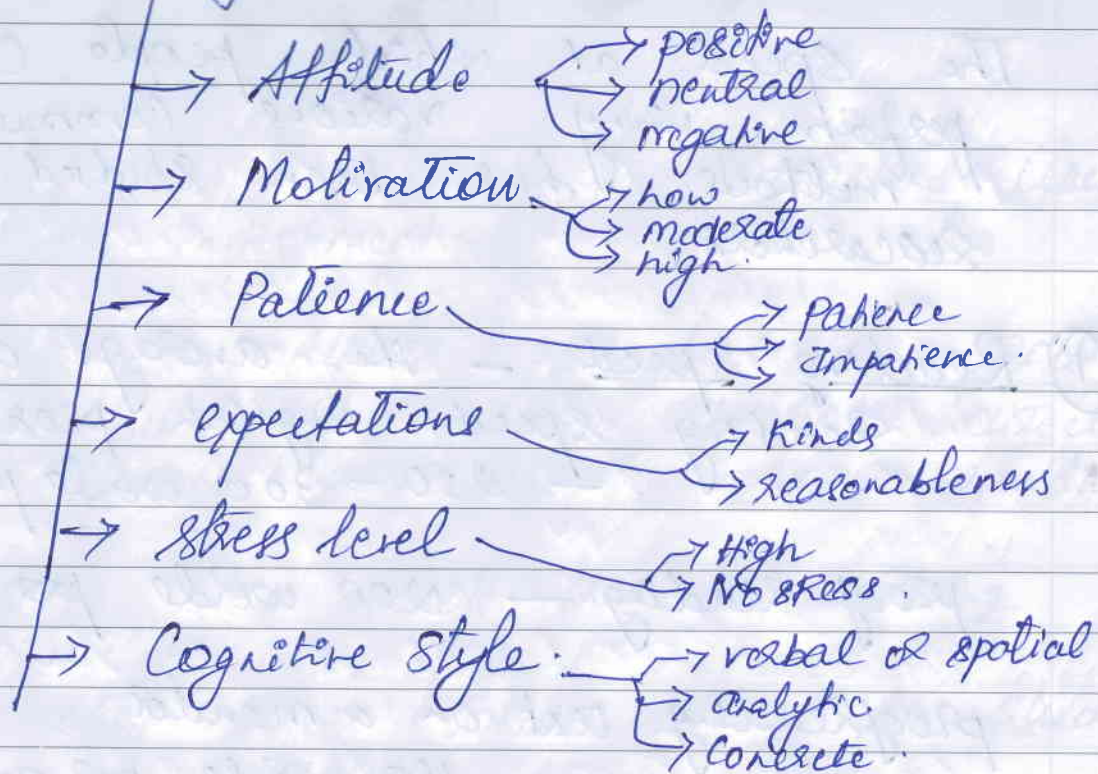 → Attitude → positive
→ neutral
→ negative
→ Motivation → low
→ moderate
→ high.
→ Patience → Patience
→ Impatience.
→
→ expectations → Kinds
→ reasonableness
→ stress level → High
→ No stress.
→ Cognitive Style. → verbal or spatial
→ analytic
→ Concrete.